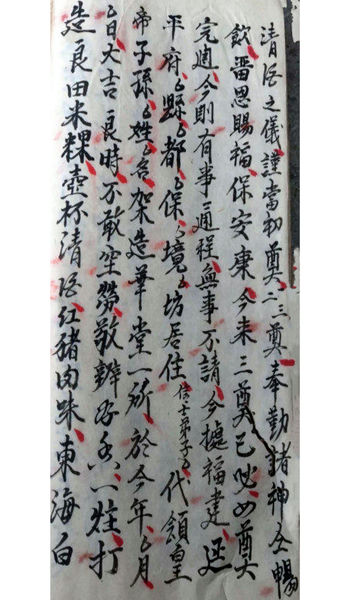 清酒之儀謹當初奠二三奠奉勸諸神全暢
飲畨恩賜福保安康今来三奠已畢奠
完週今則有事通程無事不請今據福建延
平府縣都保境坊居住信士弟子代領皇
帝子孫姓名架造華堂一所於今年月
日大吉良時不敢空勞敬辦名香一炷打
造良田米粿壺杯清酒紅猪肉眛東海白